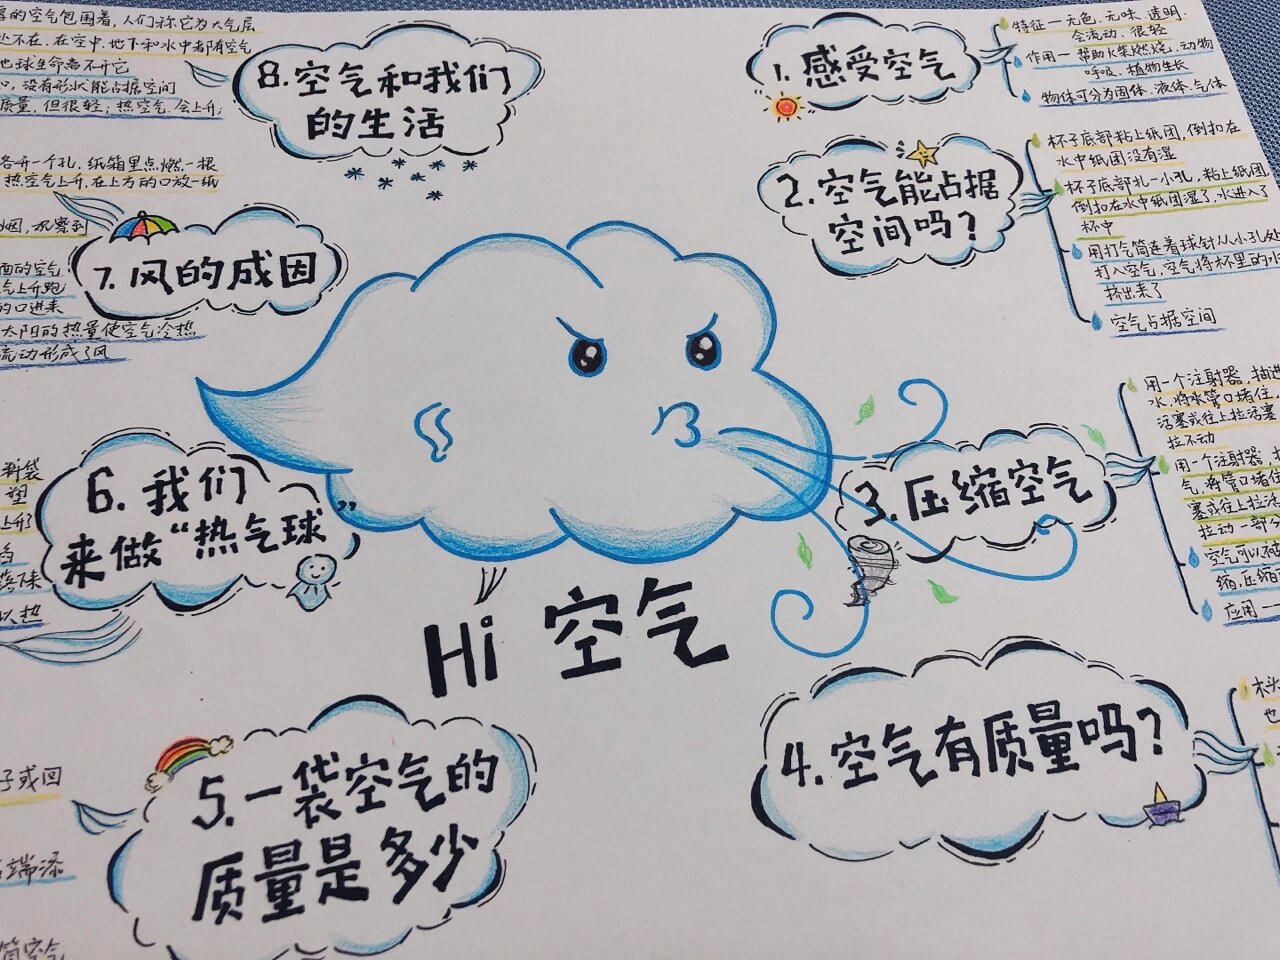 Hi 空气
1.感受空气
特征—无色、无味、透明、
会流动、很轻
作用—帮助火柴燃烧、动物
呼吸、植物生长
物体可分为固体、液体、气体
2.空气能占据
空间吗?
杯子底部粘上纸团,倒扣在
水中纸团没有湿
杯子底部扎一小孔,粘上纸团,
倒扣在水中纸团湿了,水进入了
杯中
用打气筒连着球针从小孔处
打入空气,空气将杯里的水
挤出来了
空气占据空间
3.压缩空气
用一个注射器,抽进
水,将水管口堵住,
活塞或往上拉活塞
拉不动
用一个注射器,
气,将管口堵住
塞或往上拉活
拉动一部分
空气可以被
缩,压缩
应用一
4.空气有质量吗?
木头
也
5.一袋空气的
质量是多少
子或回
端添
筒空气
6.我们
来做“热气球”
料袋
塑
上升了
落下来
以热
7.风的成因
各开一个孔,纸箱里点燃一根
热空气上升,在上方的口放一纸
烟,观察到
面的空气
气上升跑
的口进来
太阳的热量使空气冷热
流动形成了风
8.空气和我们
的生活
的空气包围着,人们称它为大气层
处不在,在空中、地下和水中都有空气
地球生命离不开它
没有形状能占据空间
质量,但很轻;热空气会上升;